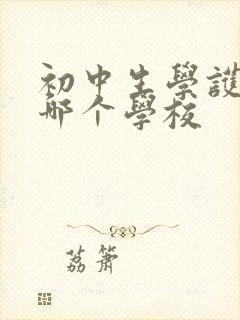 初中生學護
哪个學校
荔簫